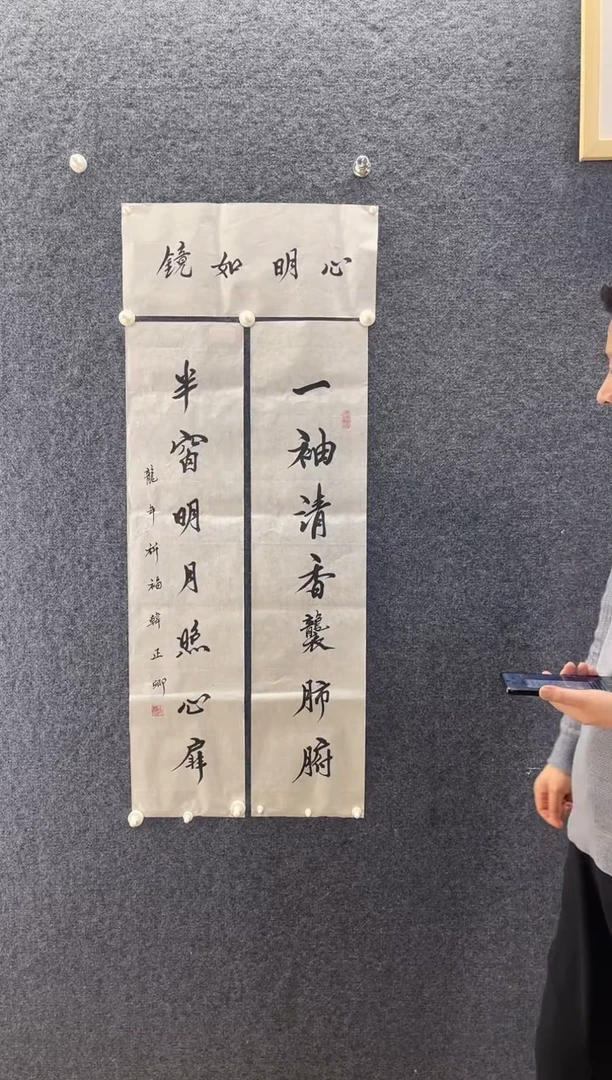 心明如镜
一袖清香襲肺腑
半窗明月照心扉
龍年祈福韓正卿